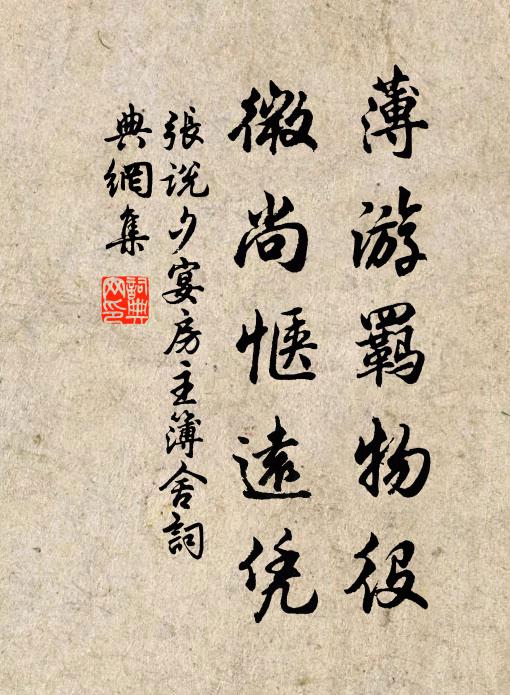 薄游羁物役
微尚惬遠凭
張説夕宴房主簿舍詞
典網集
詞典网印